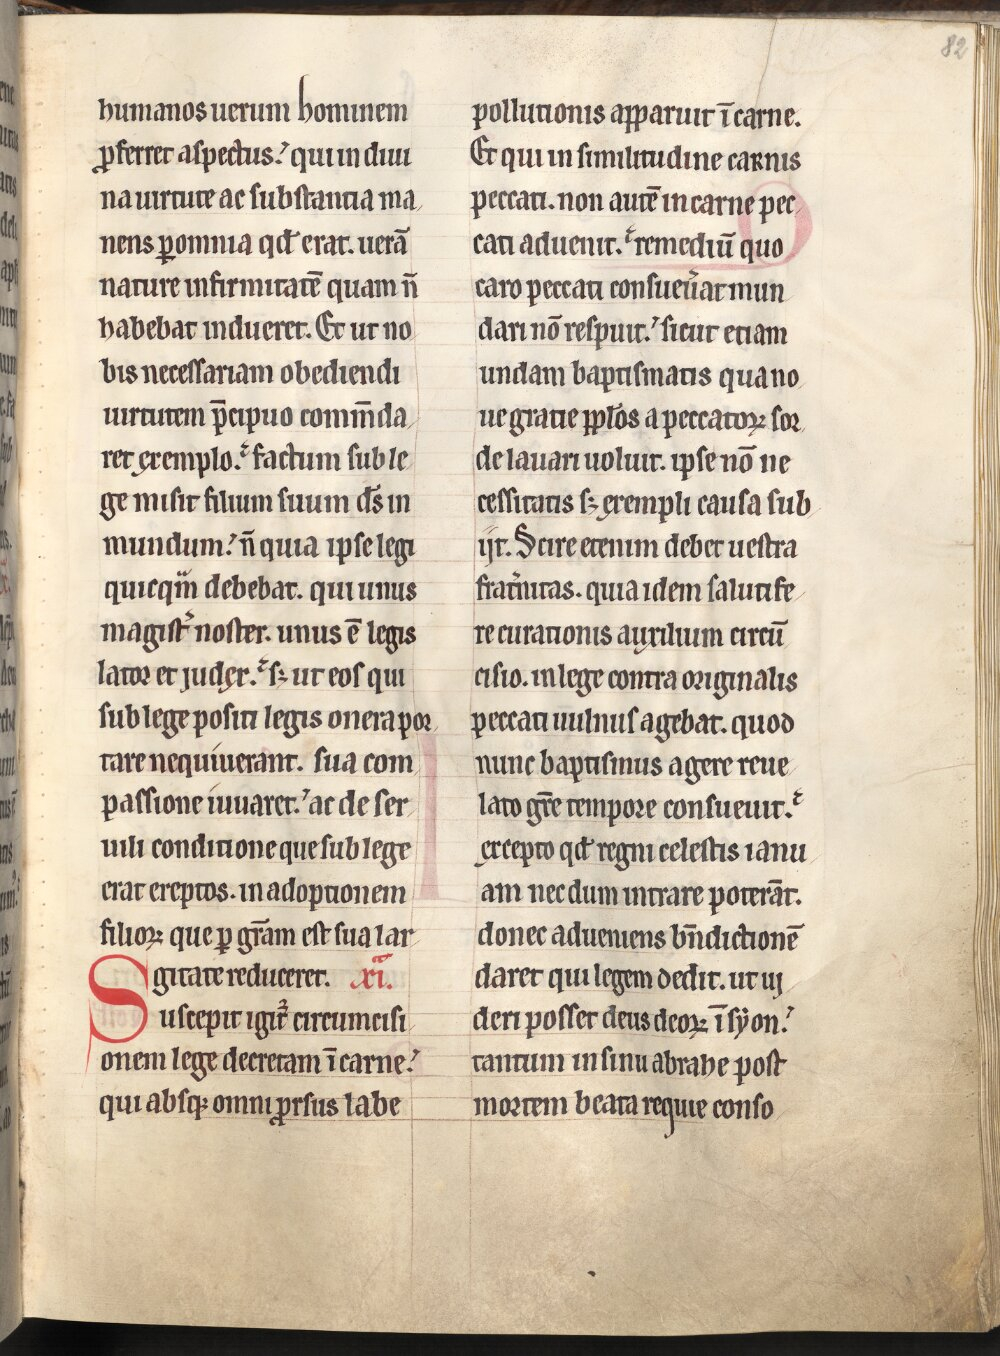 82
humanos uerum hominem
ꝓferret aspectus. qui in diui
na uirtute ac substantia ma
nens ꝑ omnia qđ erat. uerā
nature infirmitatē quam n̄
habebat indueret. Et ut no
bis necessariam obediendi
uirtutem p̄cipuo comm̄da
ret exemplo. factum sub le
ge misit filium suum d̄s in
mundum. n̄ quia ipse legi
quicqm̄ debebat. qui unus
magist̉ noster. unus ē legis
lator et judex. sꝫ ut eos qui
sub lege positi legis onera por
tare nequiuerant. sua com
passione iuuaret. ac de ser
uili conditione que sub lege
erat ereptos. in adoptionem
filioꝝ que ꝑ gr̄am est sua lar
gitate reduceret. xi.
Suscepit igit᷑ circumcisi
onem lege decretam ī carne.
qui absqꝫ omni ꝓrsus labe
pollutionis apparuit ī carne.
Et qui in similitudine carnis
peccati. non autē in carne pec
cati aduenit. remediū quo
caro peccati consueu̓at mun
dari nō respuit. sicut etiam
undam baptismatis qua no
ue gratie pp̄los a peccatoꝝ sor
de lauari uoluit. ipse nō ne
cessitatis sꝫ exempli causa sub
ijt. Scire etenim debet uestra
frat̉nitas. quia idem salutife
re curationis auxilium circū
cisio. in lege contra originalis
peccati uulnus agebat. quod
nunc baptismus agere reue
lato gr̄e tempore consueuit.
excepto qđ regni celestis ianu
am nec dum intrare poterāt.
donec adueniens bn̄dictionē
daret qui legem dedit. ut ui
deri posset deus deoꝝ ī syon.
tantum in sinu abrahe post
mortem beata requie conso